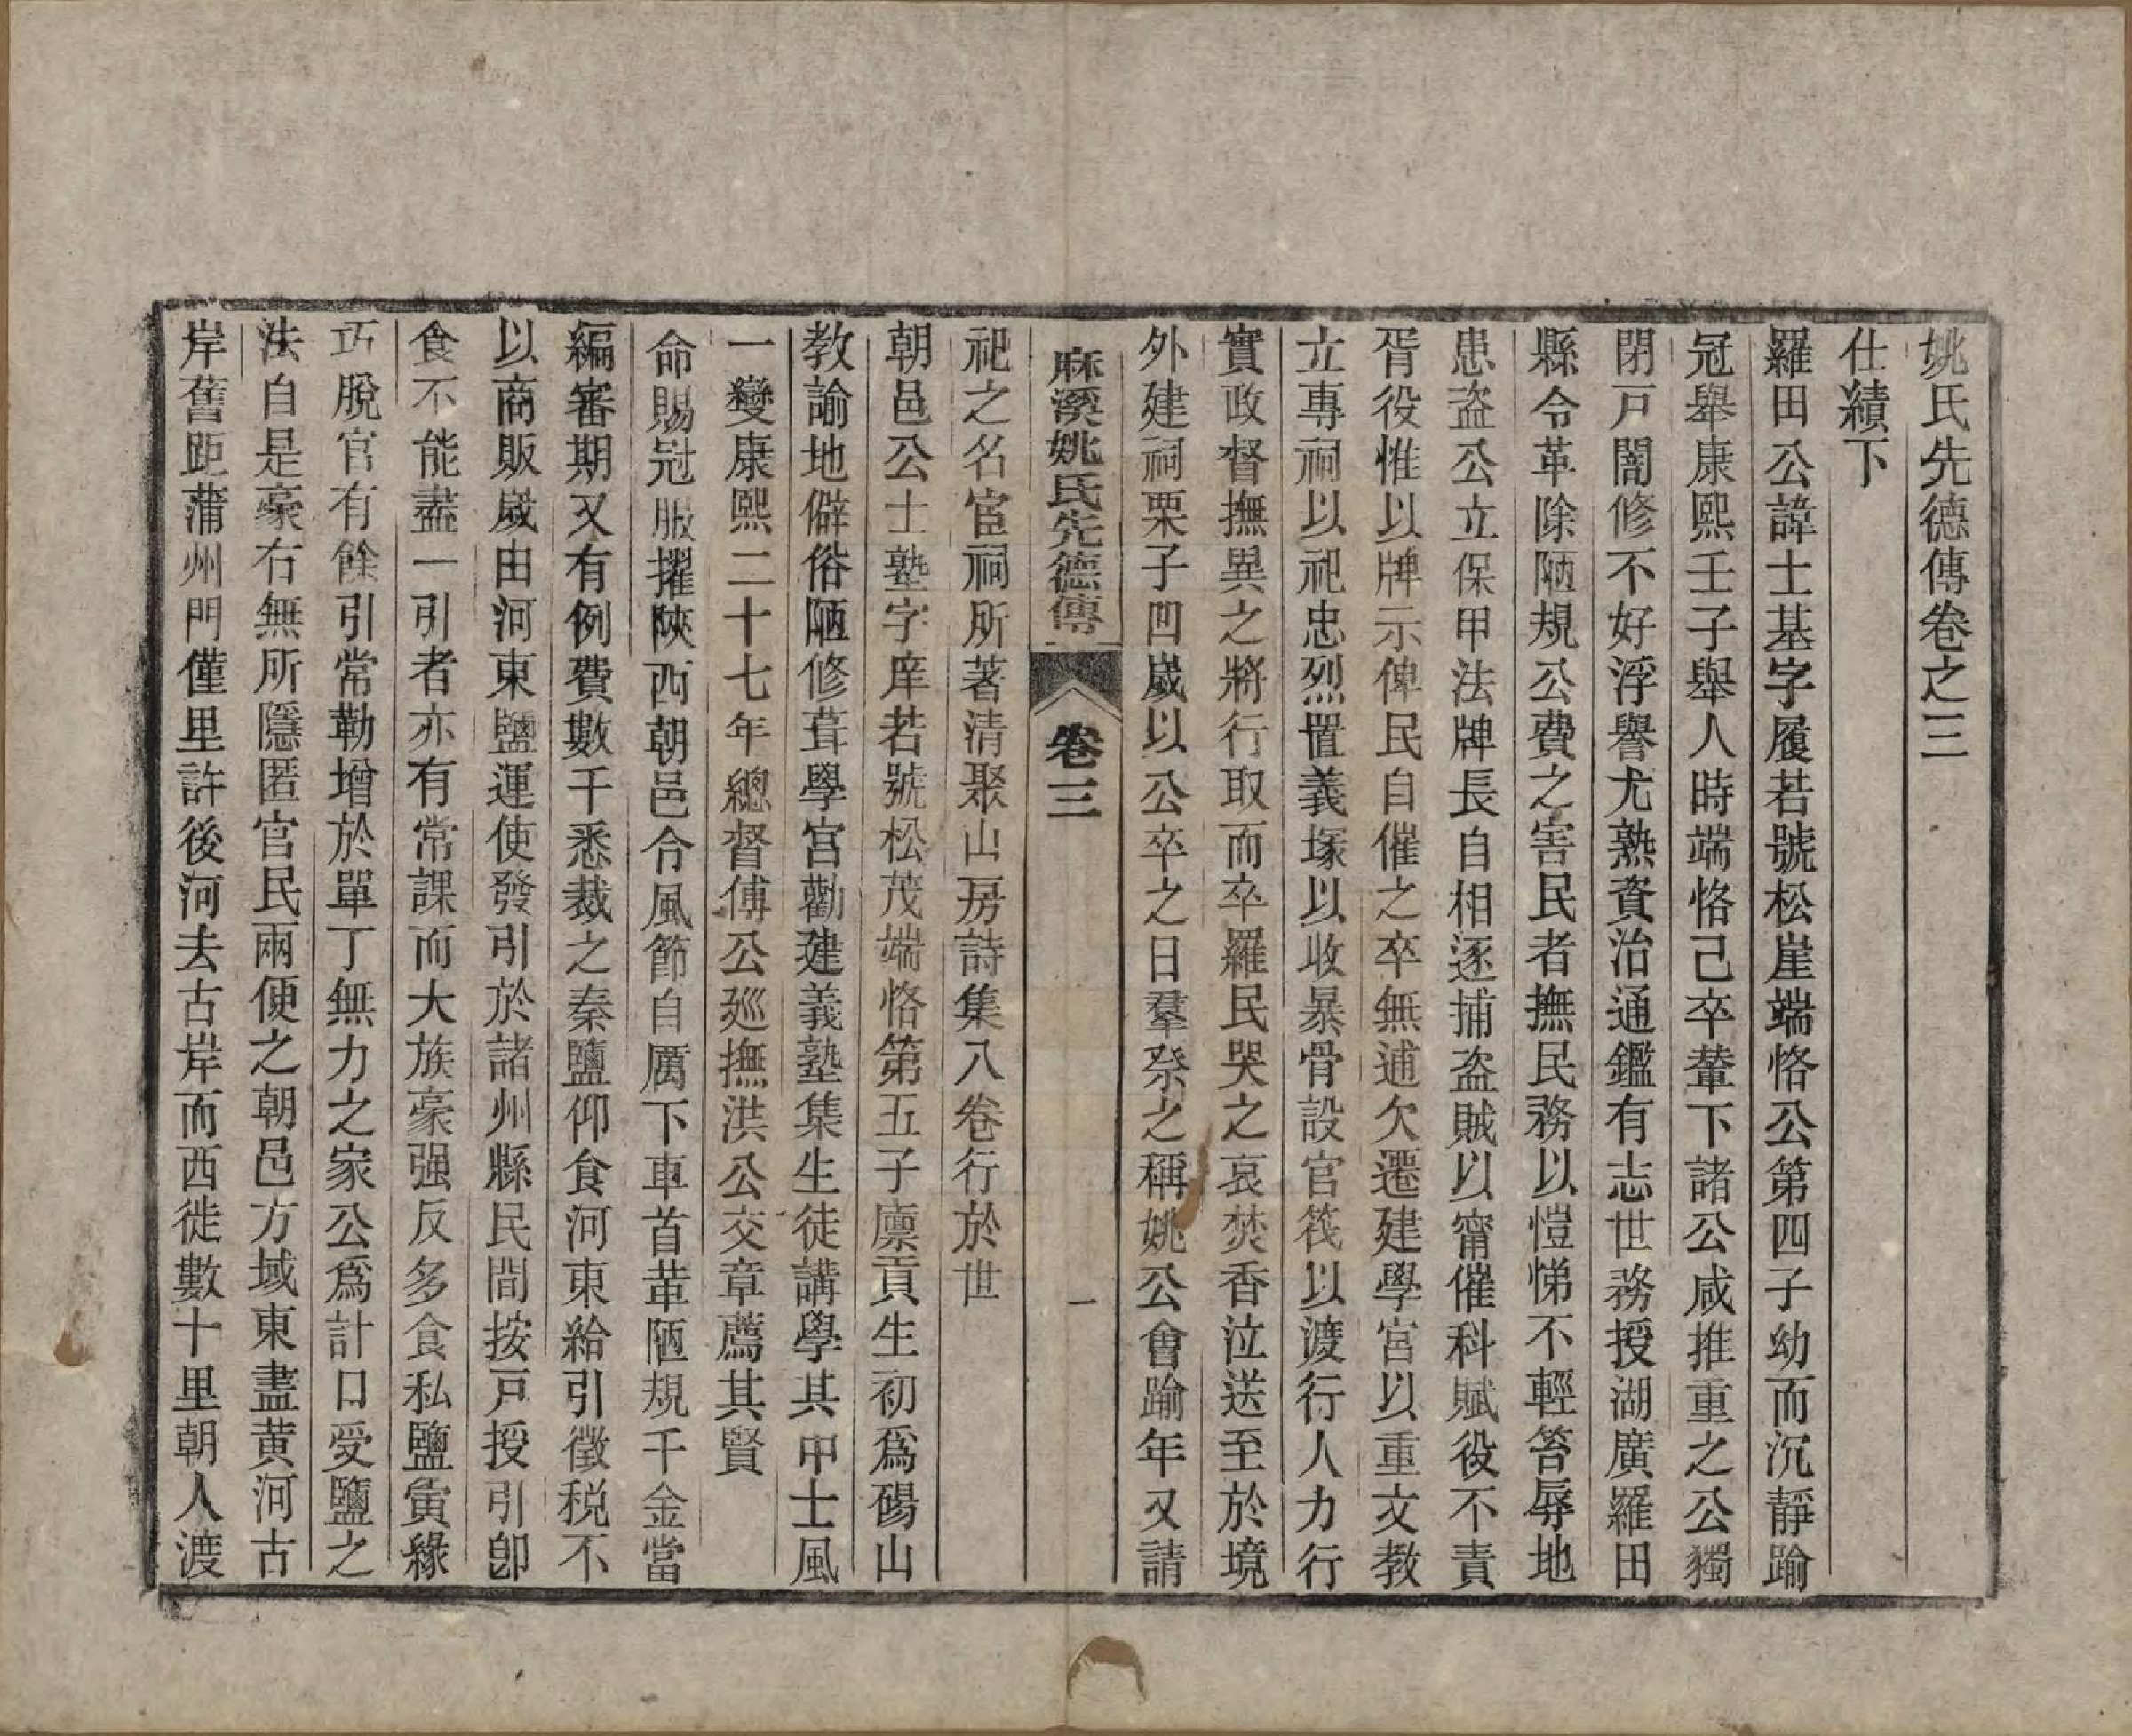 姚氏先德傳卷之三
仕績下
羅田公諱士基字履若號松崖端恪公第四子幼而沉靜踰
冠舉康熙壬子舉人時端恪己卒輦下諸公咸推重之公獨
閉戸闇修不好浮譽尤熟資治通鑑有志世務授湖廣羅田
縣令革除陋規公費之害民者撫民務以愷悌不輕笞辱地
患盜公立保甲法牌長自相逐捕盜賊以甯催科賦役不責
胥役惟以牌示俾民自催之卒無逋欠遷建學宮以重文教
立專祠以祀忠烈置義塚以收暴骨設官筏以渡行人力行
實政督撫異之將行取而卒羅民哭之哀焚香泣送至於境
外建祠栗子凹歲以公卒之日羣祭之稱姚公會踰年又請
麻溪姚氏先德傳
卷三
一
祀之名宦祠所著清聚山房詩集八卷行於世
朝邑公士塾字庠若號松茂端恪第五子廩貢生初爲碭山
教諭地僻俗陋修葺學宮勸建義塾集生徒講學其中士風
一變康熙二十七年總督傅公廵撫洪公交章薦其賢
命賜冠服擢陝西朝邑令風節自厲下車首革陋規千金當
編審期又有例費數千悉裁之秦鹽仰食河東給引徵税不
以商販歲由河東鹽運使發引於諸州縣民間按戸授引卽
食不能盡一引者亦有常課而大族豪强反多食私鹽寅緣
巧脫官有餘引常勒增於單丁無力之家公爲計口受鹽之
法自是豪右無所隱匿官民兩便之朝邑方域東盡黃河古
岸舊距蒲州門僅里許後河去古岸而西徙數十里朝人渡